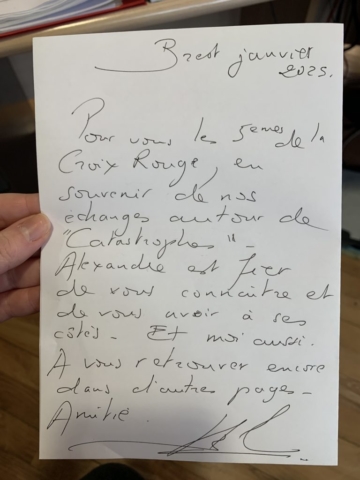 Brest janvier
2025.
Pour vous les 5emes de la
Croix Rouge, en
souvenir de nos
échanges autour de
"Catastrophes" -
Alexandre est fier
de vous connaître et
de vous avoir à ses
côtés - Et moi aussi.
A vous retrouver encore
dans d'autres pages -
Amitié